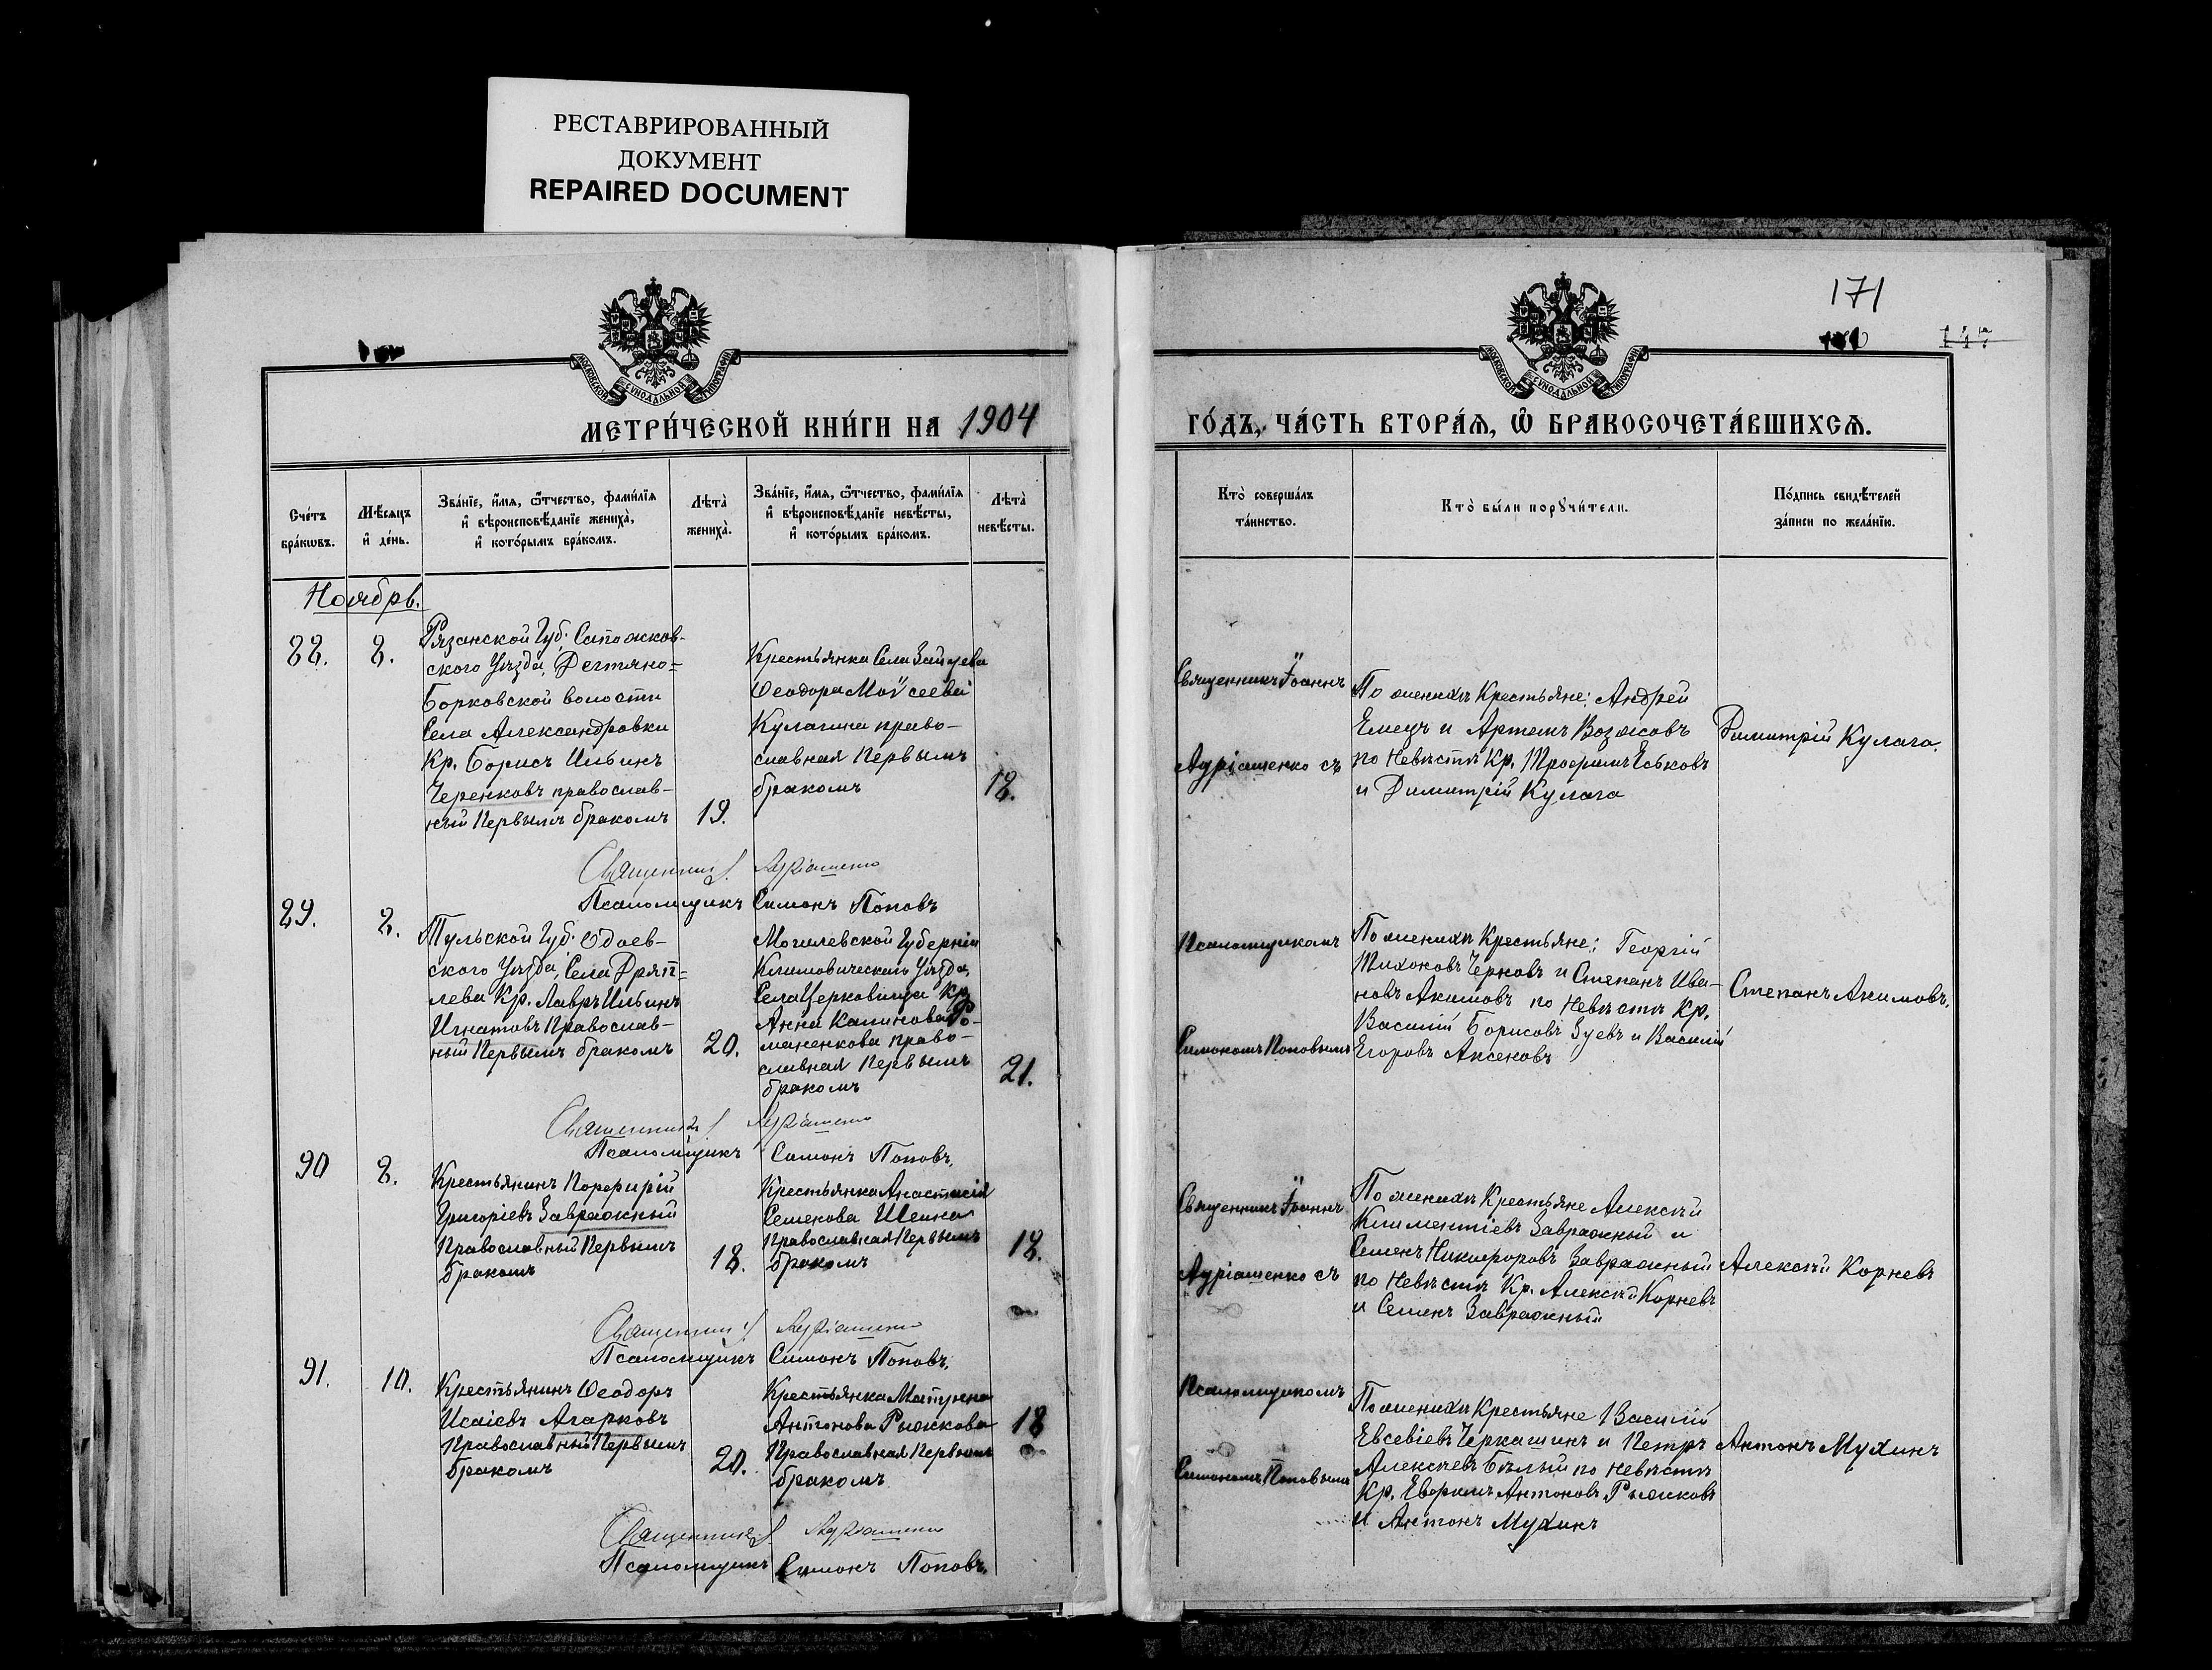 РЕСТАВРИРОВАННЫЙ
ДОКУМЕНТ
REPAIRED DOCUMENT
МОСКОВСКОЙ СѴНОДАЛЬНОЙ ТИПОГРАФІИ
МЕТРИ́ЧЕСКОЙ КНИ́ГИ НА 1904
Сче́тъ
бра́кѡвъ.
Мѣ́сяцъ
и҆ де́нь.
Зва́нїе, и҆́мя, ѻ҆́тчество, фами́лїя
и҆ вѣроисповѣ́данїе жениха̀,
и҆ кото́рымъ бра́комъ.
Лѣта̀
жениха̀.
Зва́нїе, и҆́мя, ѻ҆́тчество, фами́лїя
и҆ вѣроисповѣ́данїе невѣ́сты,
и҆ кото́рымъ бра́комъ.
Лѣта̀
невѣ́сты.
Ноябрь.
88.
8.
Рязанской Губ. Сапожков-
ского Уѣзда, Дегтяно-
Борковской волости
Села Александровки
Кр. Борисъ Ильинъ
Черенковъ православ-
ный Первымъ бракомъ
19.
Крестьянка Села Зайцева
Ѳеодора Моѵсеева
Кулагина право-
славная Первымъ
бракомъ
18.
Священник І.
Псаломщикъ Симонъ Поповъ
89.
8.
Тульской Губ. Одоев-
ского Уѣзда, Села Дряп-
лева Кр. Лавръ Ильинъ
Игнатовъ Православ-
ный Первымъ бракомъ
20.
Могилевской Губерніи
Климовическаго Уѣзда,
Села Церковища Кр.
Анна Калинова Ро-
маненкова право-
славная Первымъ
бракомъ
21.
Священник І.
Псаломщикъ Симонъ Поповъ.
90
8.
Крестьянинъ Порфирій
Григоріевъ Завражный
Православный Первымъ
бракомъ
18.
Крестьянка Анастасія
Семенова Шеина
Православная Первымъ
бракомъ
18.
Священник І.
Псаломщикъ Симонъ Поповъ.
91.
10.
Крестьянинъ Ѳеодоръ
Исаіевъ Агарковъ
Православный Первымъ
бракомъ
20.
Крестьянка Матрена
Антонова Рыжкова
Православная Первымъ
бракомъ
18
Священник І.
Псаломщикъ Симонъ Поповъ.
171
147
МОСКОВСКОЙ СѴНОДАЛЬНОЙ ТИПОГРАФІИ
ГО́ДЪ, ЧА́СТЬ ВТОРА́Я, Ѡ҆ БРАКОСОЧЕТА́ВШИХСЯ.
Кто̀ соверша́лъ
та́инство.
Кто̀ бы́ли порꙋчи́тели.
По́дпись свидѣ́телей
за́писи по жела́нїю.
Священникъ Іоаннъ
Ауріашенко съ
По женихѣ Крестьяне: Андрей
Емецъ и Артемъ Возжовъ
по Невѣстѣ Кр. Трофимъ Еськовъ
и Димитрій Кулага
Димитрій Кулага.
Псаломщикомъ
Симономъ Поповымъ
По женихѣ Крестьяне: Георгій
Тихоновъ Черновъ и Степанъ Ива-
новъ Акимовъ по Невѣстѣ Кр.
Василій Борисовъ Зуевъ и Василій
Егоровъ Аксеновъ
Степанъ Акимовъ.
Священникъ Іоаннъ
Ауріашенко съ
По женихѣ Крестьяне Алексѣй
Климентіевъ Завражный и
Семенъ Никифоровъ Завражный
по Невѣстѣ Кр. Алексѣй Корневъ
и Семенъ Завражный
Алексѣй Корневъ
Псаломщикомъ
Симономъ Поповымъ
По женихѣ Крестьяне Василій
Евсевіевъ Черкашинъ и Петръ
Алексѣевъ Бѣлый по невѣстѣ
Кр. Ефимъ Антоновъ Рыжковъ
и Антонъ Мухинъ
Антонъ Мухинъ